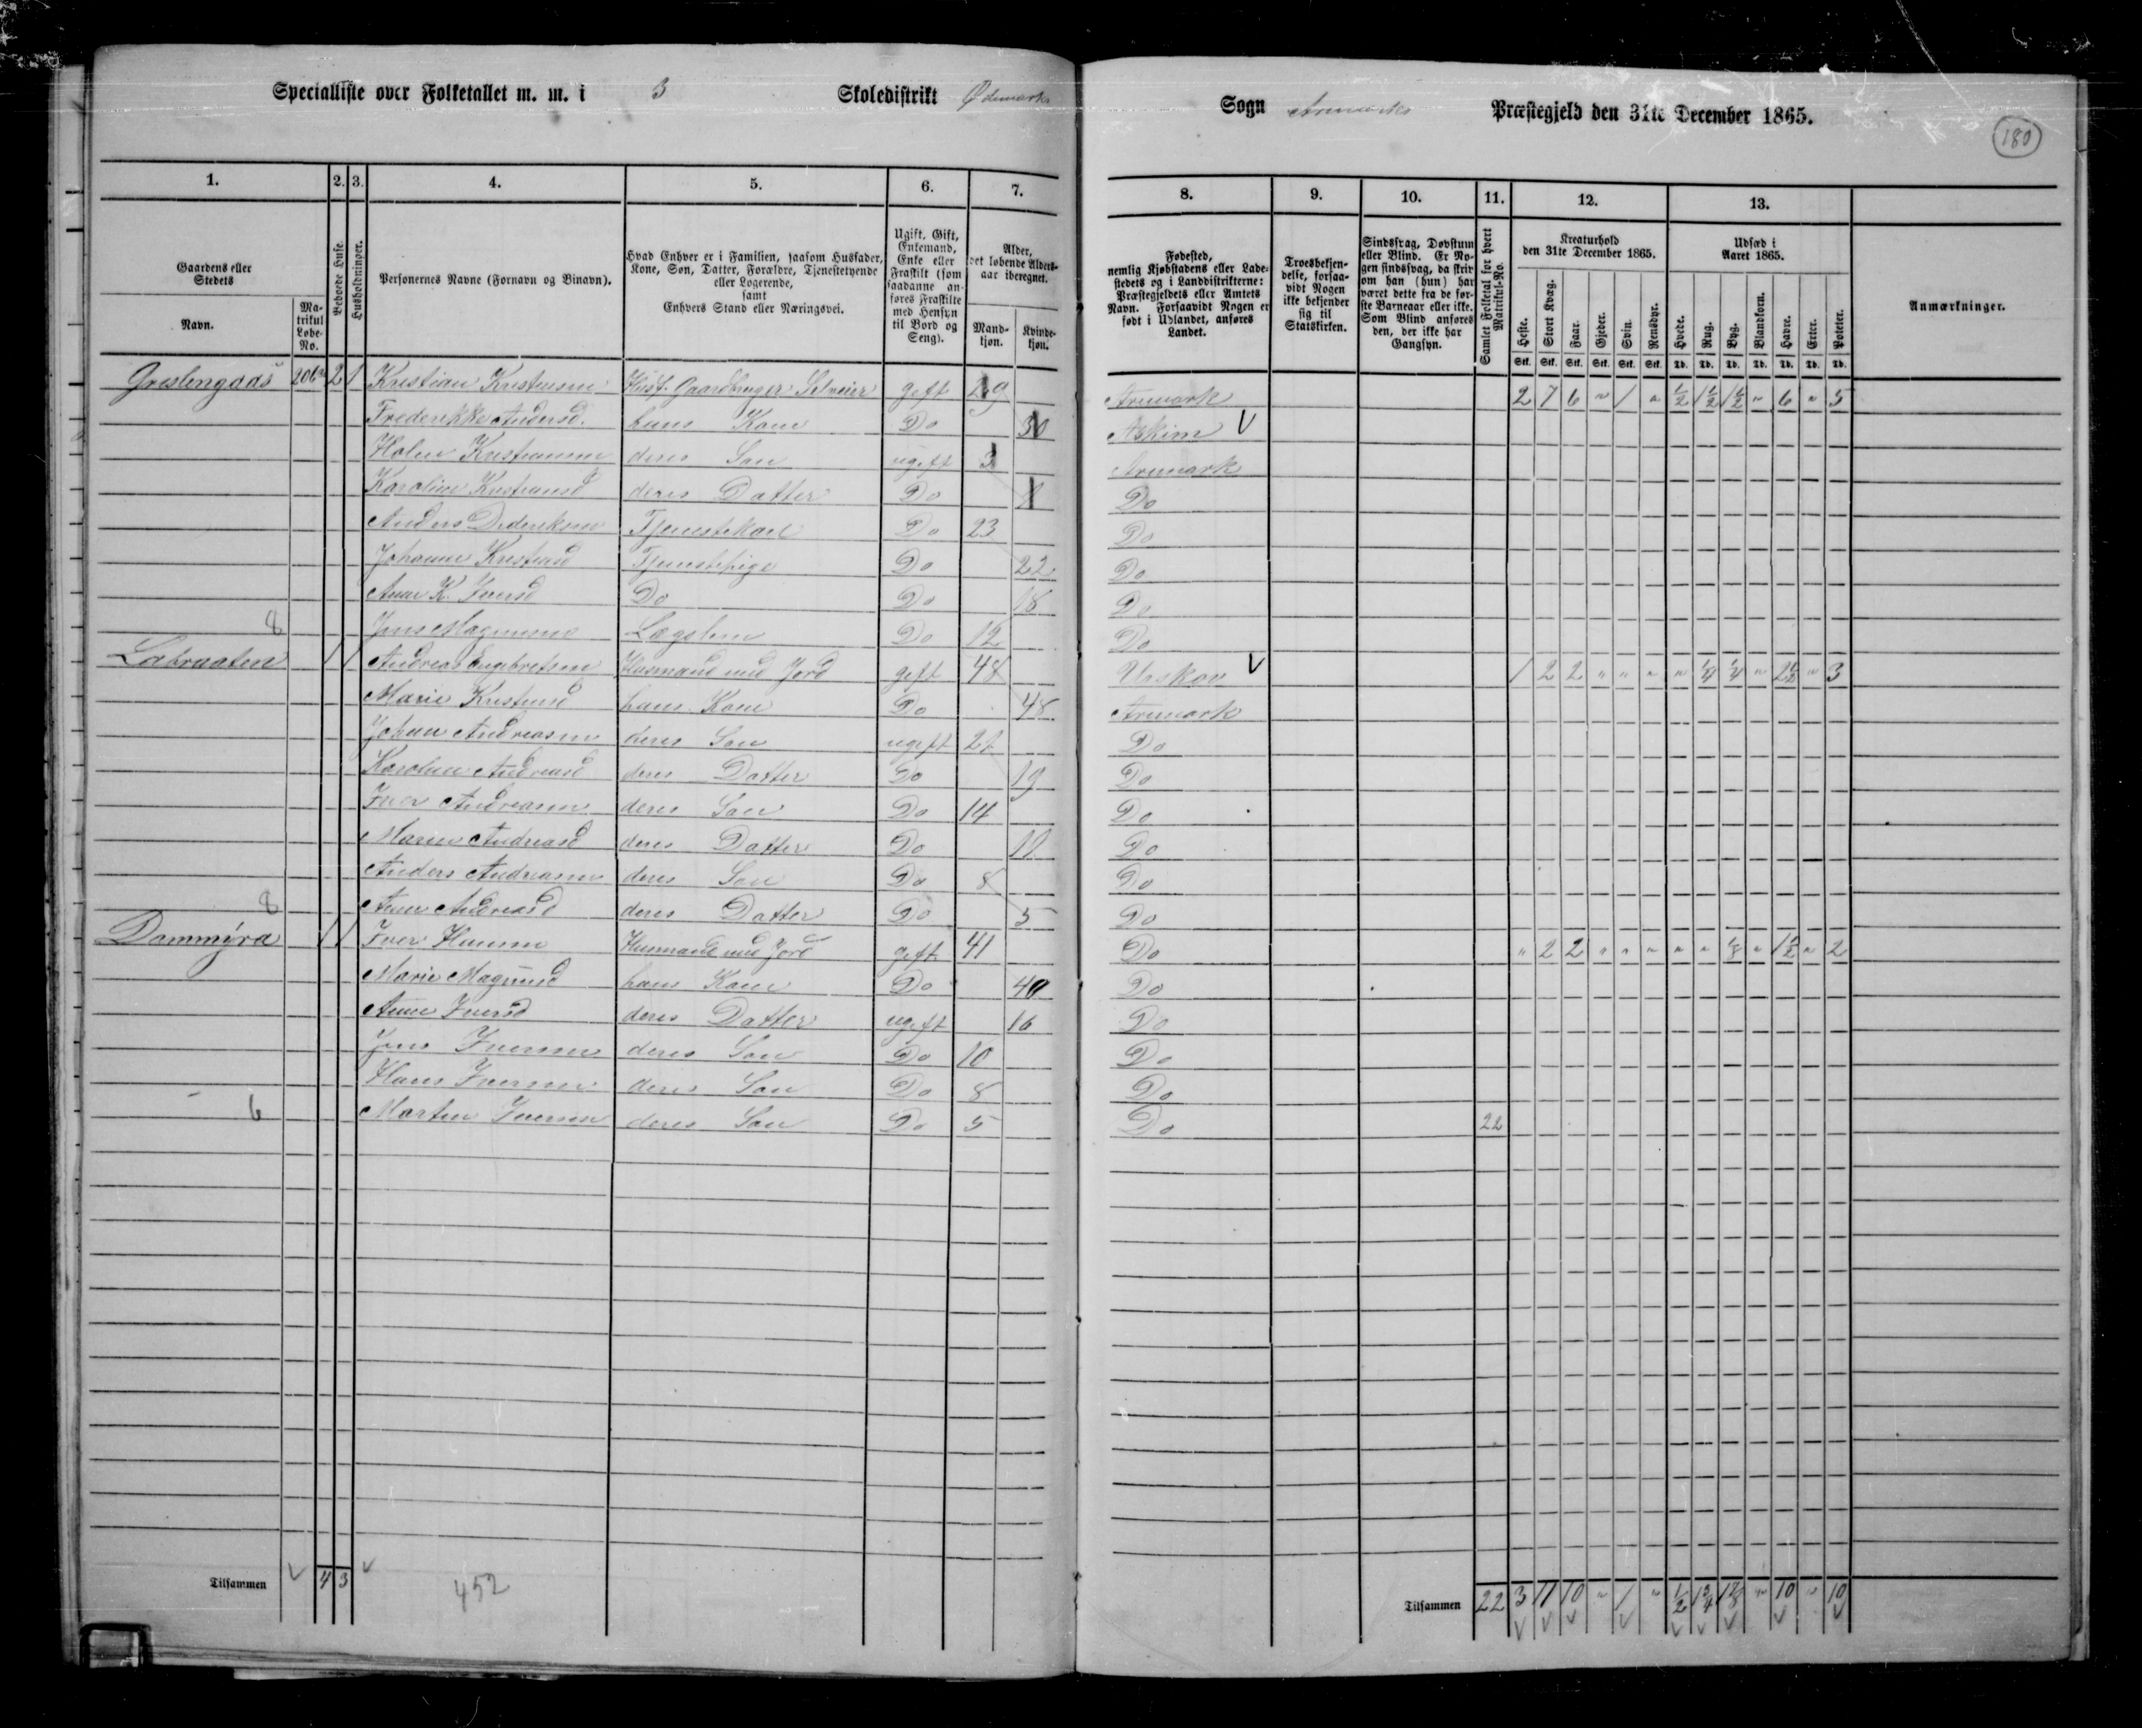 Specialliste over Folketallet m. m. i 3 Skoledistrikt Ødemarks Sogn Aremarks Præstegjeld den 31te December 1865.
180
1. 2. 3. 4. 5. 6. 7. 8. 9. 10. 11. 12. 13.
Gaardens eller Stedets Navn. Matrikul Løbe-No. Beboede Huse. Husholdninger. Personernes Navne (Fornavn og Binavn). Hvad Enhver er i Familien, saasom Husfader, Kone, Søn, Datter, Forældre, Tjenestetyende eller Logerende, samt Enhvers Stand eller Næringsvei. Ugift, Gift, Enkemand, Enke eller Fraskilt (som saadanne anføres Fraskilte med Hensyn til Bord og Seng). Alder, det løbende Aldersaar iberegnet. Mandkjøn. Kvindekjøn. Fødested, nemlig Kjøbstadens eller Ladestedets og i Landdistrikterne: Præstegjeldets eller Amtets Navn. Forsaavidt Nogen er født i Udlandet, anføres Landet. Troesbekjendelse, forsaavidt Nogen ikke bekjender sig til Statskirken. Sindssvag, Døvstum eller Blind. Er Nogen sindssvag, da skriv om han (hun) har været dette fra de første Barneaar eller ikke. Som Blind anføres den, der ikke har Gangsyn. Samlet Folketal for hvert Matrikul-No. Kreaturhold den 31te December 1865. Heste. Stort Kvæg. Faar. Gjeder. Svin. Rensdyr. Udsæd i Aaret 1865. Hvede. Rug. Byg. Blandkorn. Havre. Erter. Poteter. Anmærkninger.
Stk. Stk. Stk. Stk. Stk. Stk. Td. Td. Td. Td. Td. Td. Td.
Greslengaas 206 2 1 Kristian Kristensen Husf. Gaardbruger Selveier gift 29 Aremark 2 7 6 " 1 " 1/2 1 1/2 1 1/2 " 6 " 5
Frederikke Andersd. hans Kone Do 30 Askim V
Kristiansen deres Søn ugift 3 Aremark
Karoline Kristiansd deres Datter Do 1 Do
Anders Dideriksen Tjenestekarl Do 23 Do
Johanne Kristiansd Tjenestepige Do 22 Do
Anne K. Iversd Do Do 18 Do
8 Jens Magnusen Lægslem Do 12 Do
Labraaten 1 1 Andreas Engebretsen Husmand med Jord gift 48 Urskov V 1 2 2 " " " " 1/4 1/4 " 2 1/2 " 3
Marie Kristensd hans Kone Do 48 Aremark
Johan Andreasen deres Søn ugift 21 Do
Karoline Andreasd deres Datter Do 19 Do
Iver Andreasen deres Søn Do 14 Do
Maren Andreasd deres Datter Do 11 Do
Anders Andreasen deres Søn Do 8 Do
8 Anne Andreasd deres Datter Do 5 Do
Dammyra 1 1 Iver Hansen Husmand med Jord gift 41 Do " 2 2 " " " " " 1/8 " 1 1/2 " 2
Marie Magnusd hans Kone Do 40 Do
Anne Iversd deres Datter ugift 16 Do
Jens Iversen deres Søn Do 10 Do
Hans Iversen deres Søn Do 8 Do
6 Martin Iversen deres Søn Do 5 Do 22
Tilsammen 4 3 452 Tilsammen 22 3 11 10 " 1 " 1/2 1 3/4 1 7/8 " 10 " 10